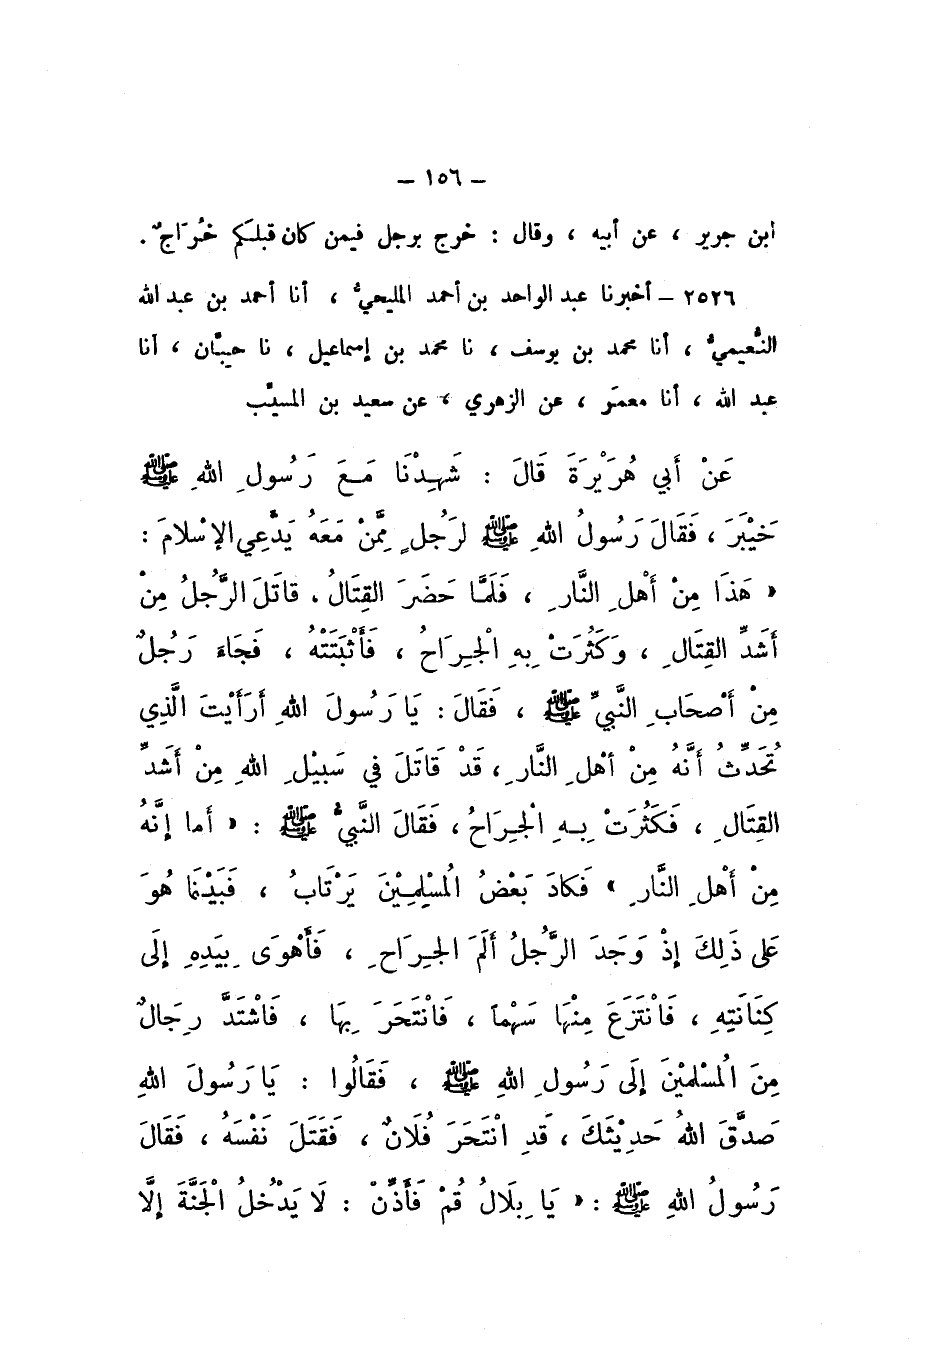 – ١٥٦ –
ابن جرير ، عن أبيه ، وقال : خرج برجل فيمن كان قبلكم خُرَاجٌ .
٢٥٢٦ – أخبرنا عبد الواحد بن أحمد المليحيُّ ، أنا أحمد بن عبد الله
النُّعيميُّ ، أنا محمد بن يوسف ، نا محمد بن إسماعيل ، نا حِبَّان ، أنا
عبد الله ، أنا معمَر ، عن الزهري ، عن سعيد بن المسيَّب
عَنْ أَبي هُرَيْرَةَ قَالَ : شَهِدْنَا مَعَ رَسُولِ اللهِ ﷺ
خَيْبَرَ ، فَقَالَ رَسُولُ اللهِ ﷺ لرَجُلٍ مِمَّنْ مَعَهُ يَدَّعِي الإِسْلامَ :
« هَذَا مِنْ أَهْلِ النَّارِ ، فَلَمَّا حَضَرَ القِتَالُ . قاتَلَ الرَّجُلُ مِنْ
أَشَدِّ القِتَالِ ، وَكَثُرَتْ بِهِ الْجِرَاحُ ، فَأَثْبَتَتْهُ ، فَجَاءَ رَجُلٌ
مِنْ أَصْحَابِ النَّبيِّ ﷺ ، فَقَالَ : يَا رَسُولَ اللهِ أَرَأَيْتَ الَّذِي
تُحَدِّثُ أَنَّهُ مِنْ أَهْلِ النَّارِ ، قَدْ قَاتَلَ في سَبِيْلِ اللهِ مِنْ أَشَدِّ
القِتَالِ ، فَكَثُرَتْ بِهِ الْجِرَاحُ ، فَقَالَ النَّبيُّ ﷺ : « أَما إِنَّهُ
مِنْ أَهْلِ النَّارِ » فَكادَ بَعْضُ الْمُسْلِمِيْنَ يَرْتَابُ ، فَبَيْنَمَا هُوَ
عَلى ذَلِكَ إِذْ وَجَدَ الرَّجُلُ أَلَمَ الجِرَاحِ ، فَأَهْوَى بِيَدِهِ إِلَى
كِنَانَتِهِ ، فَانْتَزَعَ مِنْهَا سَهْماً ، فَانْتَحَرَ بِهَا ، فَاشْتَدَّ رِجَالٌ
مِنَ الْمُسْلِمِيْنَ إِلَى رَسُولِ اللهِ ﷺ ، فَقَالُوا : يَا رَسُولَ اللهِ
صَدَّقَ اللهُ حَدِيْثَكَ ، قَدِ انْتَحَرَ فُلَانٌ ، فَقَتَلَ نَفْسَهُ ، فَقَالَ
رَسُولُ اللهِ ﷺ : « يَا بِلَالُ قُمْ فَأَذِّنْ : لَا يَدْخُلُ الْجَنَّةَ إِلَّا